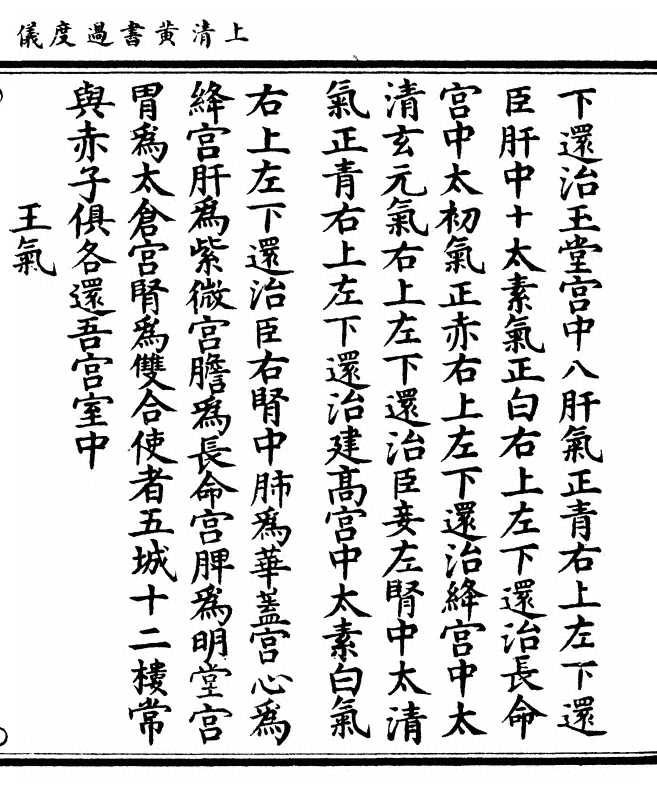 上清黄書過度儀
下還治玉堂宫中八肝氣正青右上左下還
臣肝中十太素氣正白右上左下還治長命
宫中太初氣正赤右上左下還治絳宫中太
清玄元氣右上左下還治臣妾左腎中太清
氣正青右上左下還治建髙宫中太素白氣
右上左下還治臣右腎中肺爲華蓋宫心爲
絳宫肝爲紫微宫膽爲長命宫脾爲明堂宫
胃爲太倉宫腎爲雙合使者五城十二樓常
與赤子俱各還吾宫室中
王氣